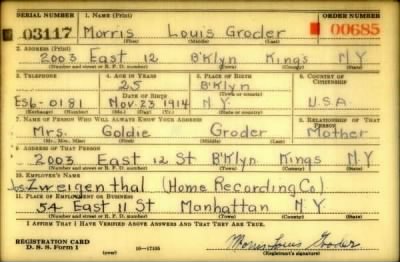 SERIAL NUMBER 1. NAME (Print) ORDER NUMBER
03117 Morris Louis Groder 00685
(First) (Middle) (Last)
2. ADDRESS (Print)
2003 East 12 B'Klyn Kings N.Y.
(Number and street or R. F. D. number) (Town) (County) (State)
3. TELEPHONE 4. AGE IN YEARS 5. PLACE OF BIRTH 6. COUNTRY OF CITIZENSHIP
25 B'Klyn
DATE OF BIRTH (Town or county)
ES6-0181 Nov-23 1914 N.Y. U.S.A.
(Exchange) (Number) (Mo.) (Day) (Yr.) (State or country)
7. NAME OF PERSON WHO WILL ALWAYS KNOW YOUR ADDRESS 8. RELATIONSHIP OF THAT PERSON
Mrs. Goldie Groder Mother
(Mr., Mrs., Miss) (First) (Middle) (Last)
9. ADDRESS OF THAT PERSON
2003 East 12 St B'Klyn Kings N.Y.
(Number and street or R. F. D. number) (Town) (County) (State)
10. EMPLOYER'S NAME
Zweigenthal (Home Recording Co.)
11. PLACE OF EMPLOYMENT OR BUSINESS
54 East 11 St Manhattan N.Y.
(Number and street or R. F. D. number) (Town) (County) (State)
I AFFIRM THAT I HAVE VERIFIED ABOVE ANSWERS AND THAT THEY ARE TRUE.
REGISTRATION CARD
D. S. S. Form 1 (over) 16-17105 Morris Louis Groder
(Registrant's signature)